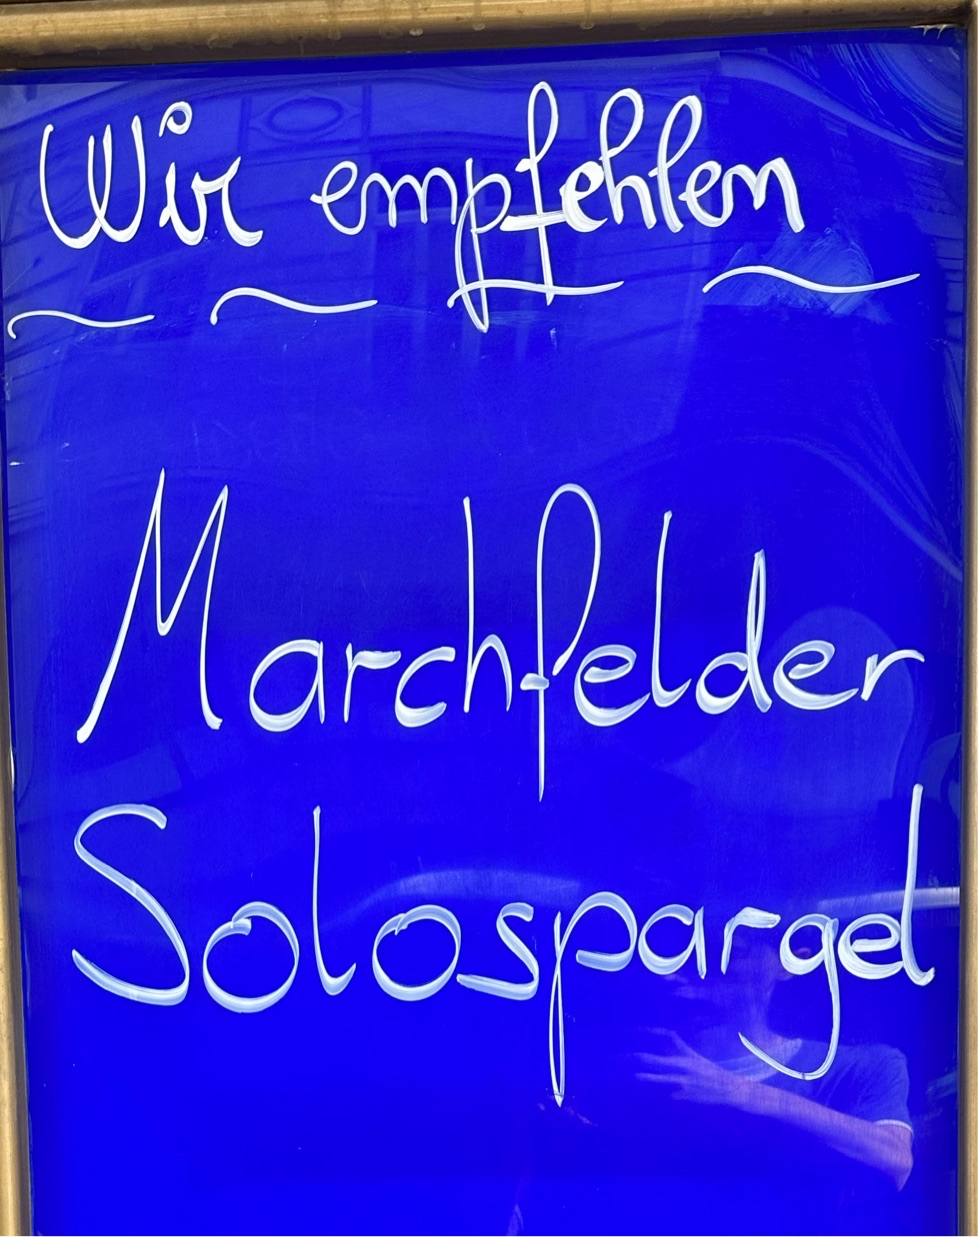 Wir empfehlen
Marchfelder
Solospargel